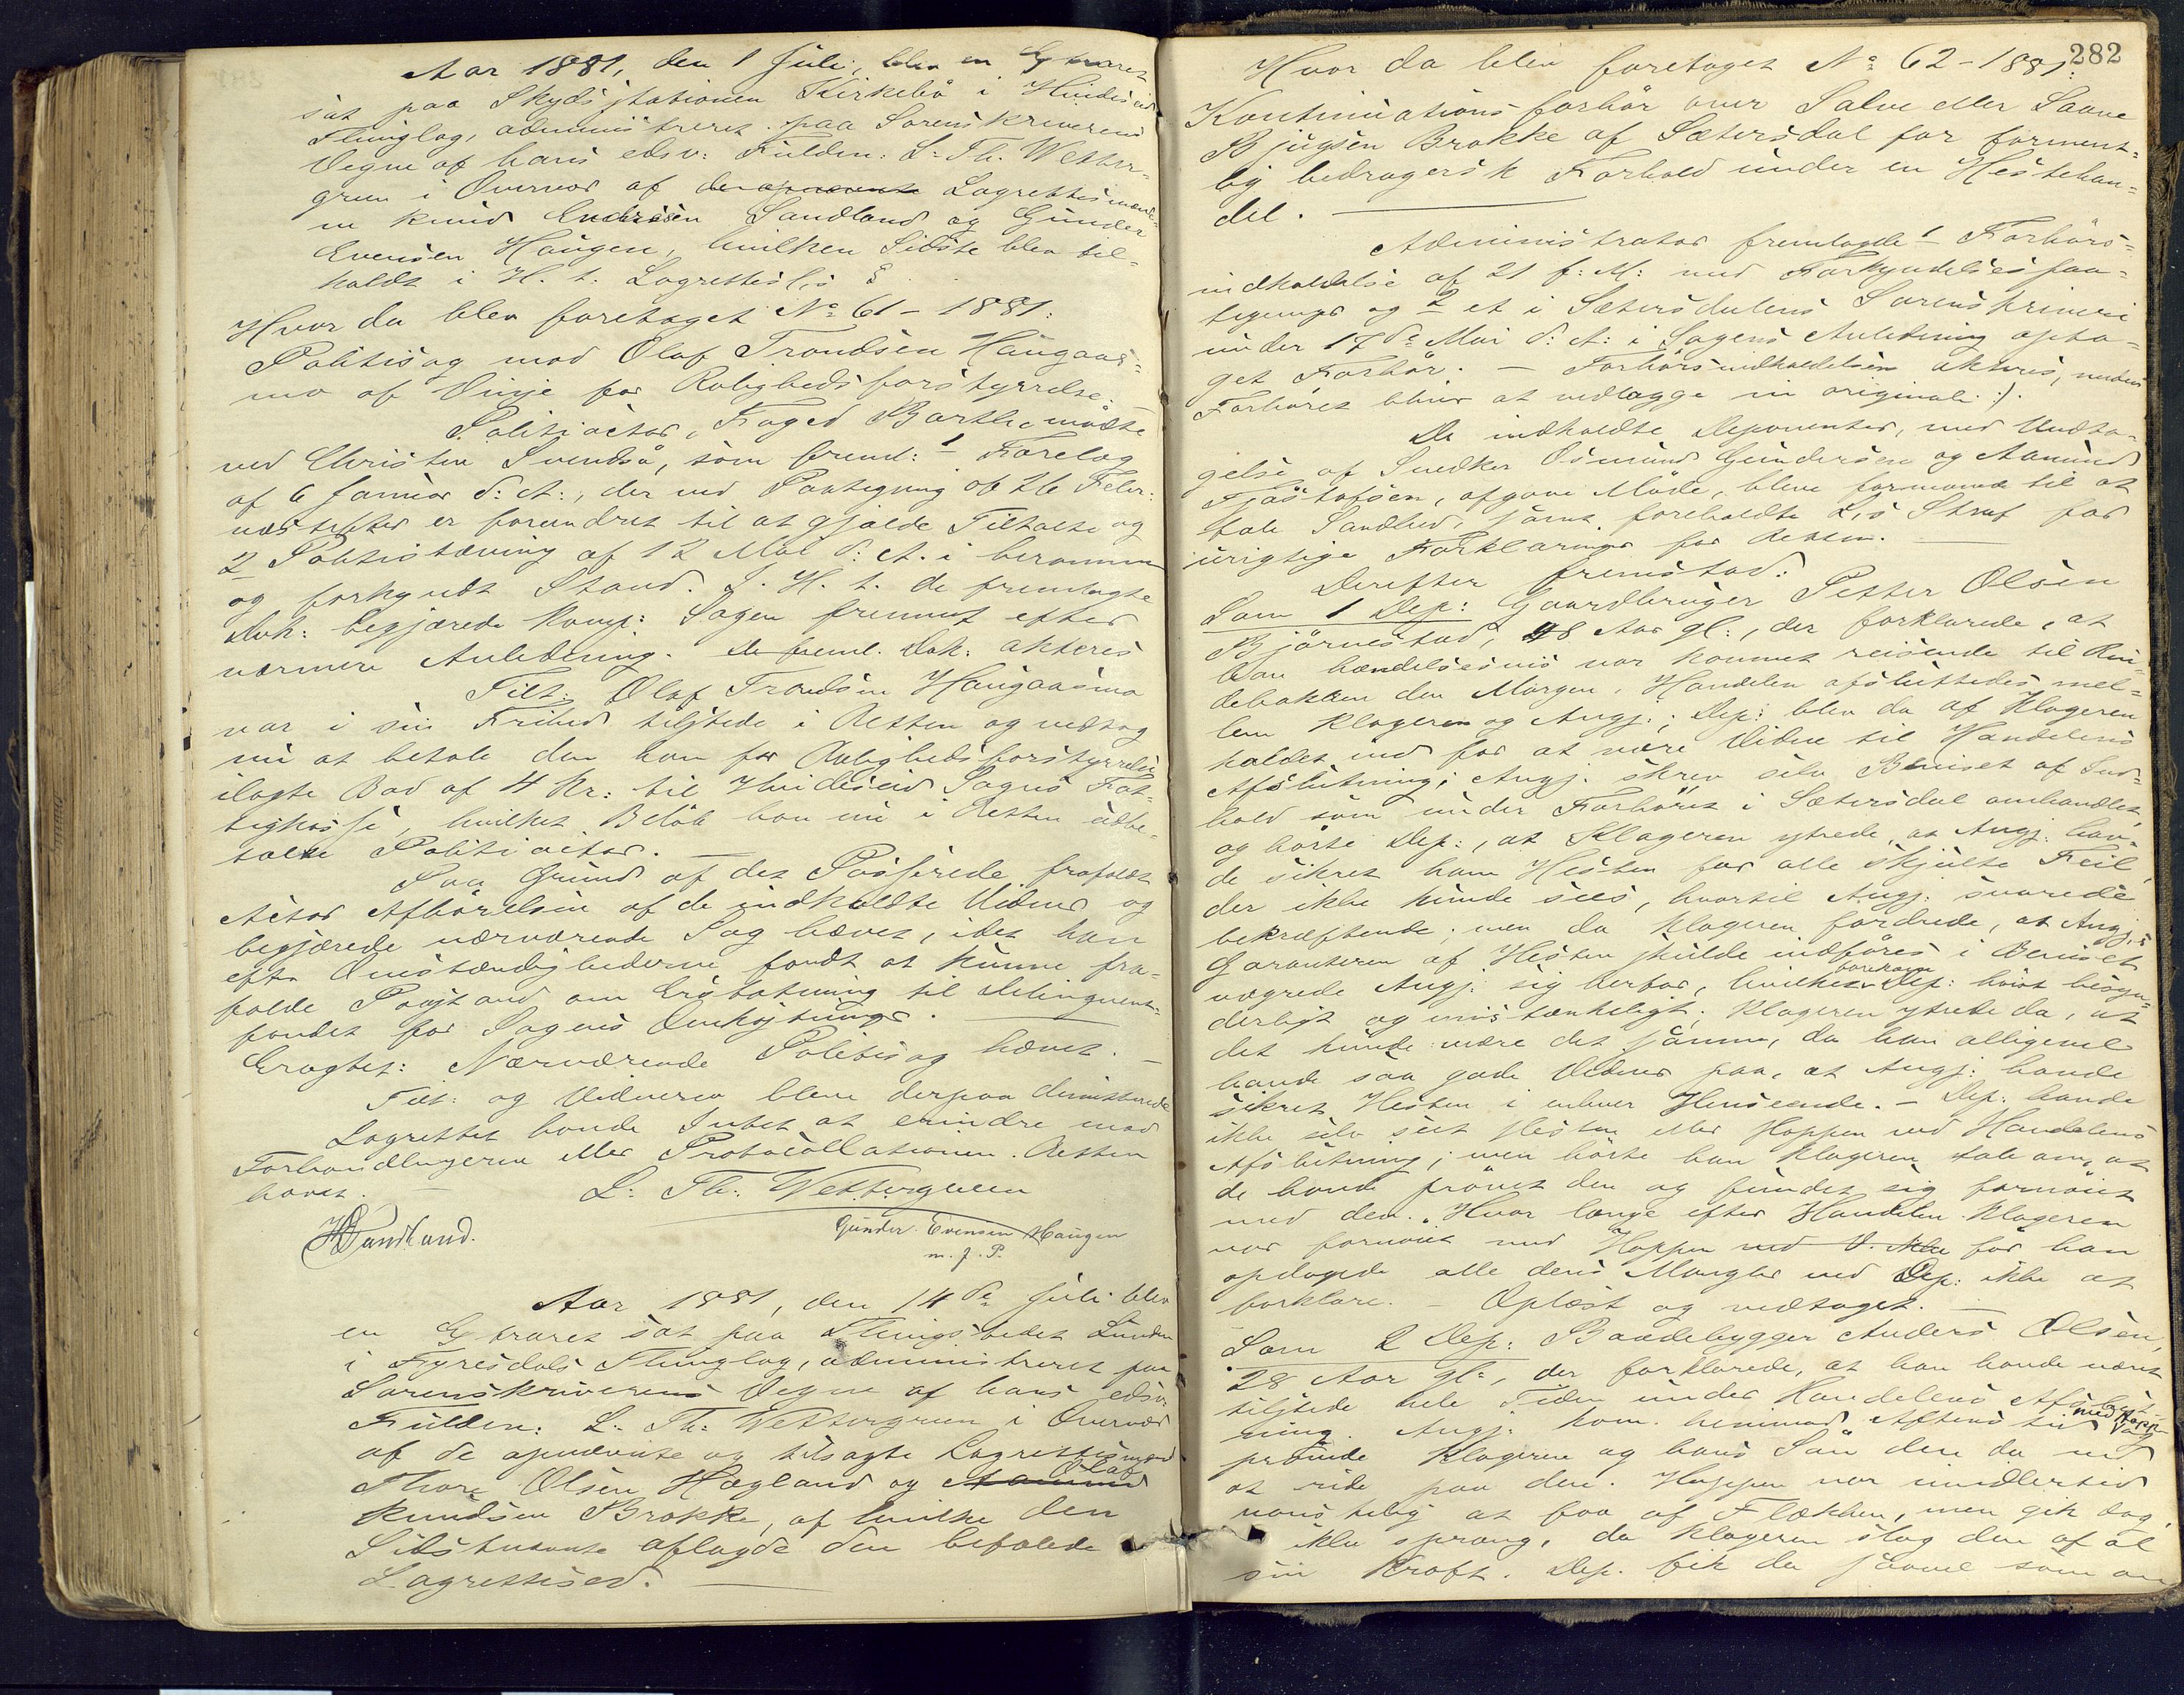 Aar 1881, den 1 Juli, blev en Extraret
sat paa Skydsstationen Kirkebö i Hvideseid
Thinglag, administreret paa Sorenskriverens
Vegne af hans edsv: Fuldm: L. Th. Wetter-
green i Overvær af de opnævnte Lagrettesmænde-
ne Knud Endresen Sandland og Gunder
Evensen Haugen, hvilken Sidste blev til-
holdt i H. t. Lagrettes lis §
Hvor da blev foretaget No 61 - 1881:
Politisag mod Olaf Trondsen Haugaas-
mo af Vinje for Rolighedsforstyrrelse.
Politiactor, Foged Barth mödte
ved Christen Svendsö, som freml: 1 Forelæg
af 6 Januar d: A:, der ved Paategning af 26 Febr:
næstefter er forandret til at gjælde Tiltalte og
2 Politistævning af 12 Mai d: A. i berammet
og forkyndt Stand. I. H. t. de fremlagte
Dok: begjærede Komp: Sagen fremmet efter
nærmere Anledning. De freml. Dok: akteres
Tilt: Olaf Trondsen Haugaasmo
var i sin Frihed tilstede i Retten og vedtog
nu at betale den ham for Rolighedsforstyrrelse
ilagte Bod af 4 Kr: til Hvideseid Sogns Fat-
tigkasse, hvilket Belöb han nu i Retten udbe-
talte Politiactor. —
Paa Grund af det Passerede frafaldt
Actor Afhörelsen af de indkaldte Vidner og
begjærede nærværende Sag hævet, idet han
efter Omstændighederne fandt at kunne fra-
falde Paastand om Erstatning til Delinquent-
fondet for Sagens Omkostninger. —
Eragtet: Nærværende Politisag hæves. —
Tilt: og Vidnerne bleve derpaa dimitterede
Lagrettet havde Intet at erindre mod
Forhandlingerne eller Protocollationen. Retten
hævet. —
L. Th: Wettergreen
KESandland.
Gunder Evensen Haugen
m. f. P.
Aar 1881, den 14de Juli blev
en Extraret sat paa Thingstedet Lunden
i Fyresdals Thinglag, administreret paa
Sorenskriverens Vegne af hans edsv:
Fuldm: L. Th: Wettergreen i Overvær
af de opnævnte og tilsagte Lagrettesmænd
Thore Olsen Hægland og Aanund Olaf
Knudsen Brokke, af hvilke den
Sidstnævnte aflagde den befalede
Lagrettesed. —
282
Hvor da blev foretaget No 62 - 1881:
Kontinuationsforhör over Salve eller Saave
Bjugsen Brokke af Sætersdal for forment-
lig bedragersk Forhold under en Hestehan-
del. —
Administrator fremlagde 1 Forhörs-
indkaldelse af 21 f: M: med Forkyndelsespaa-
tegninger og 2 et i Sætersdalens Sorenskriveri
under 17de Mai d: A: i Sagens Anledning opta-
get Forhör. — Forhörsindkaldelsen akteres, medens
Forhöret bliver at vedlægge in originali :).
De indkaldte Deponenter, med Undta-
gelse af Snedker Osmund Gundersen og Aanund
Tjöstolfsen, afgave Möde, bleve formanede til at
tale Sandhed, samt foreholdte Lis Straf for
urigtige Forklaringer for Retten. —
Derefter fremstod:
Som 1 Dep: Gaardbruger Petter Olsen
Björnestad, 48 Aar gl:, der forklarede, at
han hændelsesvis var kommet reisende til Rin-
debakken den Morgen, Handelen afsluttedes mel-
lem Klageren og Angj:; Dep: blev da af Klageren
kaldet ind for at være Vidne til Handelens
Afslutning; Angj. skrev selv Beviset af Ind-
hold som under Forhöret i Sætersdal omhandlet,
og hörte Dep:, at Klageren ytrede, at Angj. hav-
de sikret ham Hesten for alle skjulte Feil,
der ikke kunde sees, hvortil Angj. svarede
bekræftende; men da Klageren fordrede, at Angj:s
Garanteren af Hesten skulde indföres i Beviset,
vægrede Angj: sig derfor, hvilket forekom Dep: höist besyn-
derligt og mistænkeligt; Klageren ytrede da, at
det kunde være det samme, da han alligevel
havde saa gode Vidner paa, at Angj: havde
sikret Hesten i enhver Henseende. — Dep: havde
ikke selv seet Hesten eller Hoppen ved Handelens
Afslutning; men hörte han Klageren tale om, at
de havde prövet den og fundet sig fornöiet
med den. Hvor længe efter Handelen Klageren
var fornöiet med Hoppen för han
opdagede alle dens Mangler ved Dep: ikke at
forklare. — Oplæst og vedtaget. —
Som 2 Dep: Baadebygger Anders Olsen,
28 Aar gl:, der forklarede, at han havde været
tilstede hele Tiden under Handelens Afslut-
ning. Angj. kom henimod Aftenen med Hoppen og
prövede Klageren og hans Sön den da ved
at ride paa den. Hoppen var imidlertid
vanskelig at faa af Flækken, men gik dog,
ikke sprang, da Klageren slog den af al
sin Kraft. Dep. fik da saavel som an